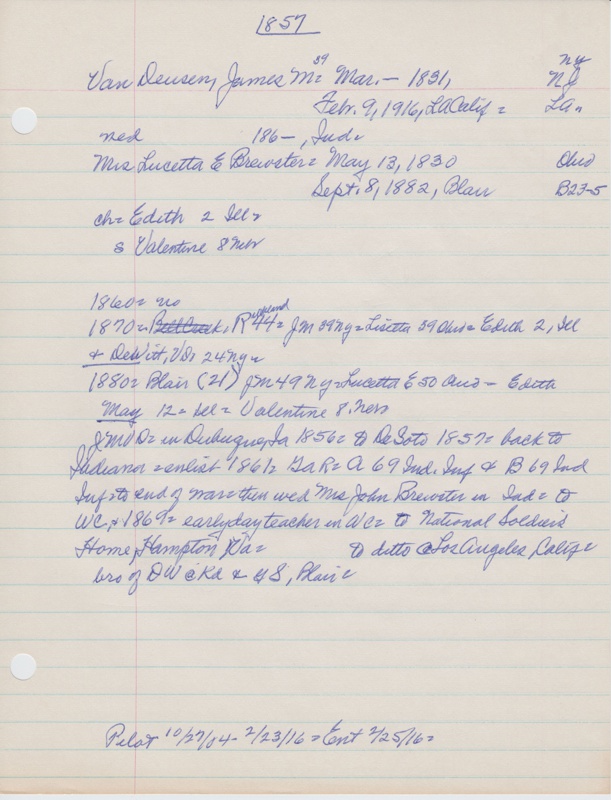 1857
Van Deusen, James M= 39 Mar. - 1831, NY NJ
Feb. 9, 1916, LA Calif = La =
wed 186-, Ind=
Mrs Lucetta E Brewster= May 13, 1830 Ohio
Sept. 8, 1882, Blair B23-5
ch= Edith 2 Ill=
& Valentine 8 Nebr
1860= no
1870= R Richland 44= J M 39 Ny= Lisetta 39 Ohio= Edith 2, Ill
& DeWitt, VD= 24 Ny=
1880= Blair (21) J M 49 Ny= Lucetta E 50 Ohio - Edith
May 12= Ill= Valentine 8 Nebr
JMVD= in Dubuque, Ia 1856= to DeSoto 1857= back to
Indiana= enlist 1861= GaR= A 69 Ind. Inf & B 69 Ind
Inf= to end of war= then wed Mrs John Brewster in Ind= to
WC, 1869= early day teacher in WC= to National Soldiers
Home, Hampton, Va= to ditto @ Los Angeles, Calif=
bro of DW & GS, Blair=
Pilot 10/27/04 - 2/23/16 = Ent 2/25/16=